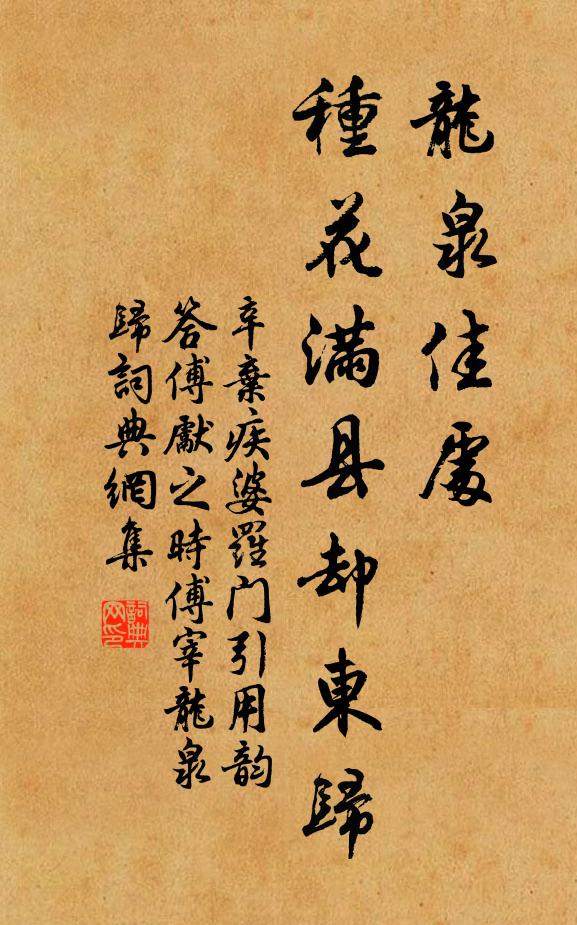 龍泉佳處
種花滿县却東歸
辛棄疾婆羅门引用韵
答傅獻之時傅宰龍泉
歸詞典網集
詞典网印